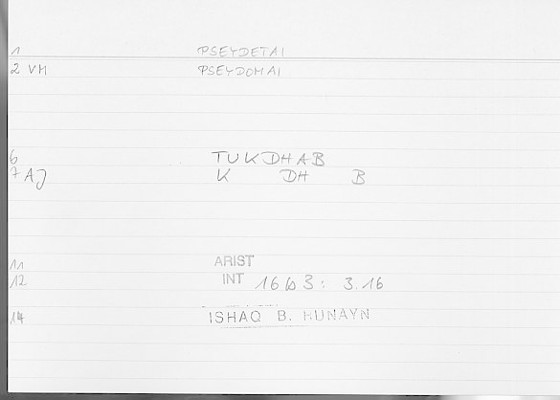 1 PSEYDETAI
2 VM PSEYDOMAI
6 TUKDHAB
7 AJ K DH B
11 ARIST
12 INT 16b3: 3.16
14 ISHAQ B. HUNAYN